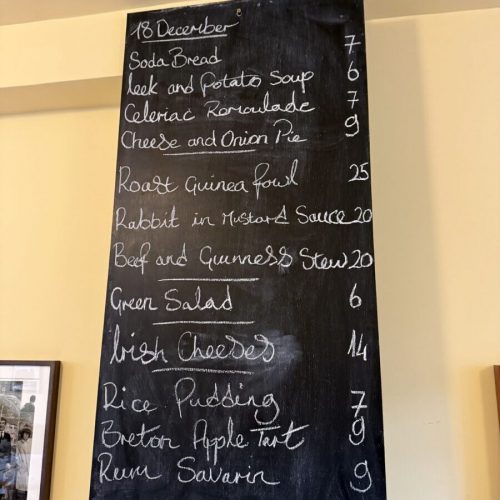 18 December
Soda Bread 7
Leek and Potato Soup 6
Celeriac Remoulade 7
Cheese and Onion Pie 9
Roast Guinea fowl 25
Rabbit in Mustard Sauce 20
Beef and Guinness Stew 20
Green Salad 6
Irish Cheeses 14
Rice Pudding 7
Breton Apple Tart 9
Rum Savarin 9